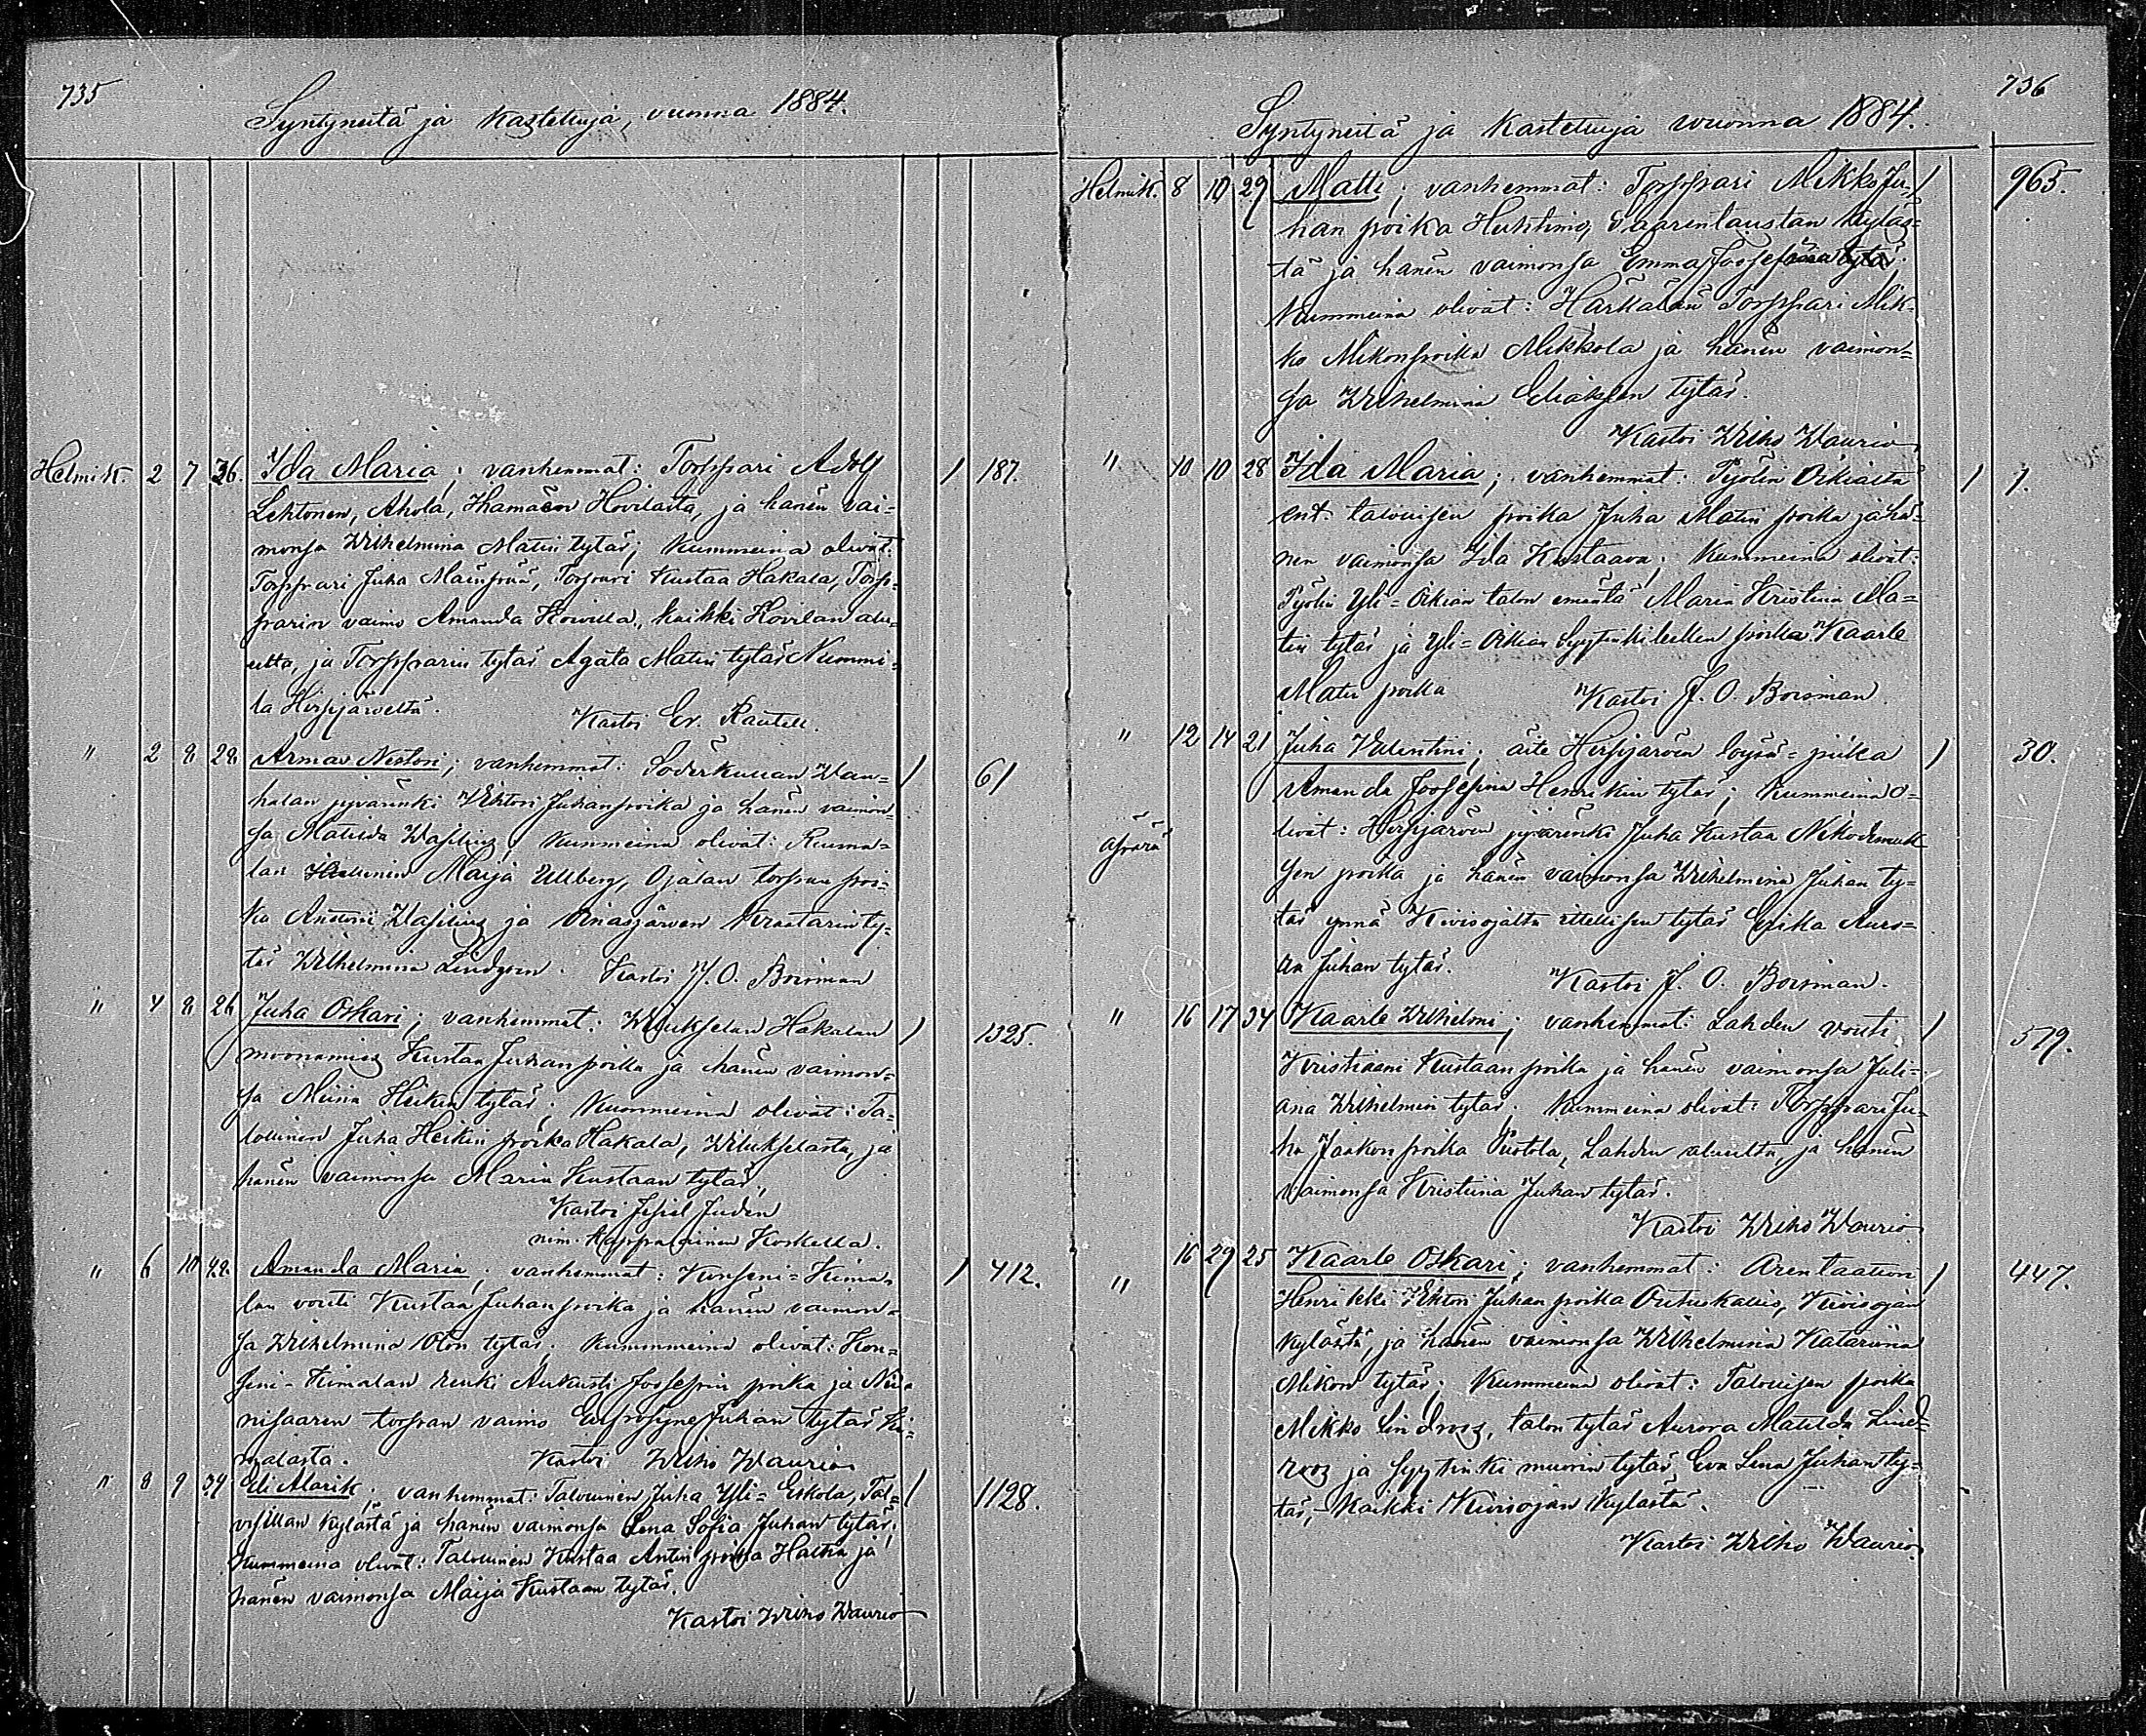 735
Syntyneitä ja kastettuja, vuonna 1884.
Helmik. 2 7 36. Ida Maria; vanhemmat: Torppari Adolf 1 187.
Lehtonen, Ahola, Ihamäen Hovilasta, ja hänen vai=
monsa Wilhelmina Matin tytär; Kummeina olivat:
Torppari Juha Mäenpää, Torppari Kustaa Hakala, Torp=
parin vaimo Amanda Hovilla, kaikki Hovilan alu=
eelta, ja Torpparin tytär Agata Matin tytär Nummi=
la Hirsjärveltä.
Kastoi Er. Rautell.
" 2 8 28 Armas Nestori; vanhemmat: Söderkullan Wan= 1 61
halan pyvärinki Viktori Juhanpoika ja hänen vaimon=
sa Matilda Wasilius Kummeina olivat: Ruuma=
lan Maija Ullberg, Ojalan torpan poi=
ka Anttoni Wasilius ja Vinasjärven Kraatarin ty=
tär Wilhelmina Lindgren. Kastoi J. O. Boisman
" 4 8 26 Juha Oskari; vanhemmat: Wilukselan Hakalan 1 1325.
moonamies Kustaa Juhanpoika ja hänen vaimon=
sa Miina Heikin tytär; Kummeina olivat: Ta=
lollinen Juha Heikin poika Hakala, Wilukselasta, ja
hänen vaimonsa Maria Kustaan tytär
Kastoi Judén
nim. Kappalainen Koskella.
" 6 10 42. Amanda Maria; vanhemmat: Konseni=Kiima= 1 412.
lan vouti Kustaa Juhanpoika ja hänen vaimon=
sa Wilhelmina Oton tytär. Kummeina olivat: Kon=
seni-Kiimalan renki Aukusti Joosepin poika ja
nisaaren torpan vaimo Eufrosyne Juhan tytär Kii=
malasta. Kastoi Wilho Waurio
" 8 9 34 Eli Alarik; vanhemmat: Talollinen Juha Yli=Eskola, Tal= 1 1128.
visillan kylästä ja hänen vaimonsa Lena Sofia Juhan tytär.
Kummeina olivat: Talollinen Kustaa Antin poika Halkia ja
hänen vaimonsa Maija Kustaan tytär.
Kastoi Wilho Waurio
736
Syntyneitä ja kastettuja vuonna 1884.
Helmik. 8 10 29 Matti; vanhemmat: Torppari Mikko Ju= 1 965.
han poika Huhtimo, Saarentaustan kyläs=
tä ja hänen vaimonsa Emma Joosefiina
Kummeina olivat: Härkälän Torppari Mik=
ko Mikonpoika Mikkola ja hänen vaimon=
sa Wilhelmina Eliaksen tytär.
Kastoi Wilho Waurio
" 10 10 28 Ida Maria; vanhemmat: Pyölin Oikialta 1 1.
ent. talollisen poika Juha Matin poika ja hä=
nen vaimonsa Ida Kustaava; Kummeina olivat:
Pyölin Yli=Oikian talon emäntä Maria Kristiina Ma=
tin tytär ja Yli=Oikian poika Kaarle
Matin poika Kastoi J. O. Boisman.
" 12 14 21 Juha Valentini; äiti Hirsjärven loysä=piika 1 30.
äpärä Amanda Joosefina Henrikin tytär; Kummeina o=
livat: Hirsjärven pyvärinki Juha Kustaa Nikodemuk
sen poika ja hänen vaimonsa Wilhelmina Juhan ty=
tär ynnä Kivisojalta itellisen tytär Erika Auro=
ra Juhan tytär. Kastoi J. O. Boisman.
" 16 17 34 Kaarle Wilhelmi; vanhemmat: Lahden vouti 1 579.
Kristiaani Kustaan poika ja hänen vaimonsa Juli=
ana Wilhelmin tytär. Kummeina olivat: Torppari Ju=
ha Jaakon poika Piistola, Lahden alueelta, ja hänen
vaimonsa Kristiina Juhan tytär.
Kastoi Wilho Waurio
" 16 29 25 Kaarle Oskari; vanhemmat: Arentaattori 1 447.
Henrikki Viktori Juhan poika Outuskallio, Kivisojan
kylästä, ja hänen vaimonsa Wilhelmina Katariina
Mikon tytär; Kummeina olivat: Talollisen poika
Mikko Lindroos, talon tytär Aurora Matilda Lind=
roos ja syytinki muorin tytär Eva Lena Juhan ty=
tär, kaikki Kivisojan kylästä.
Kastoi Wilho Waurio